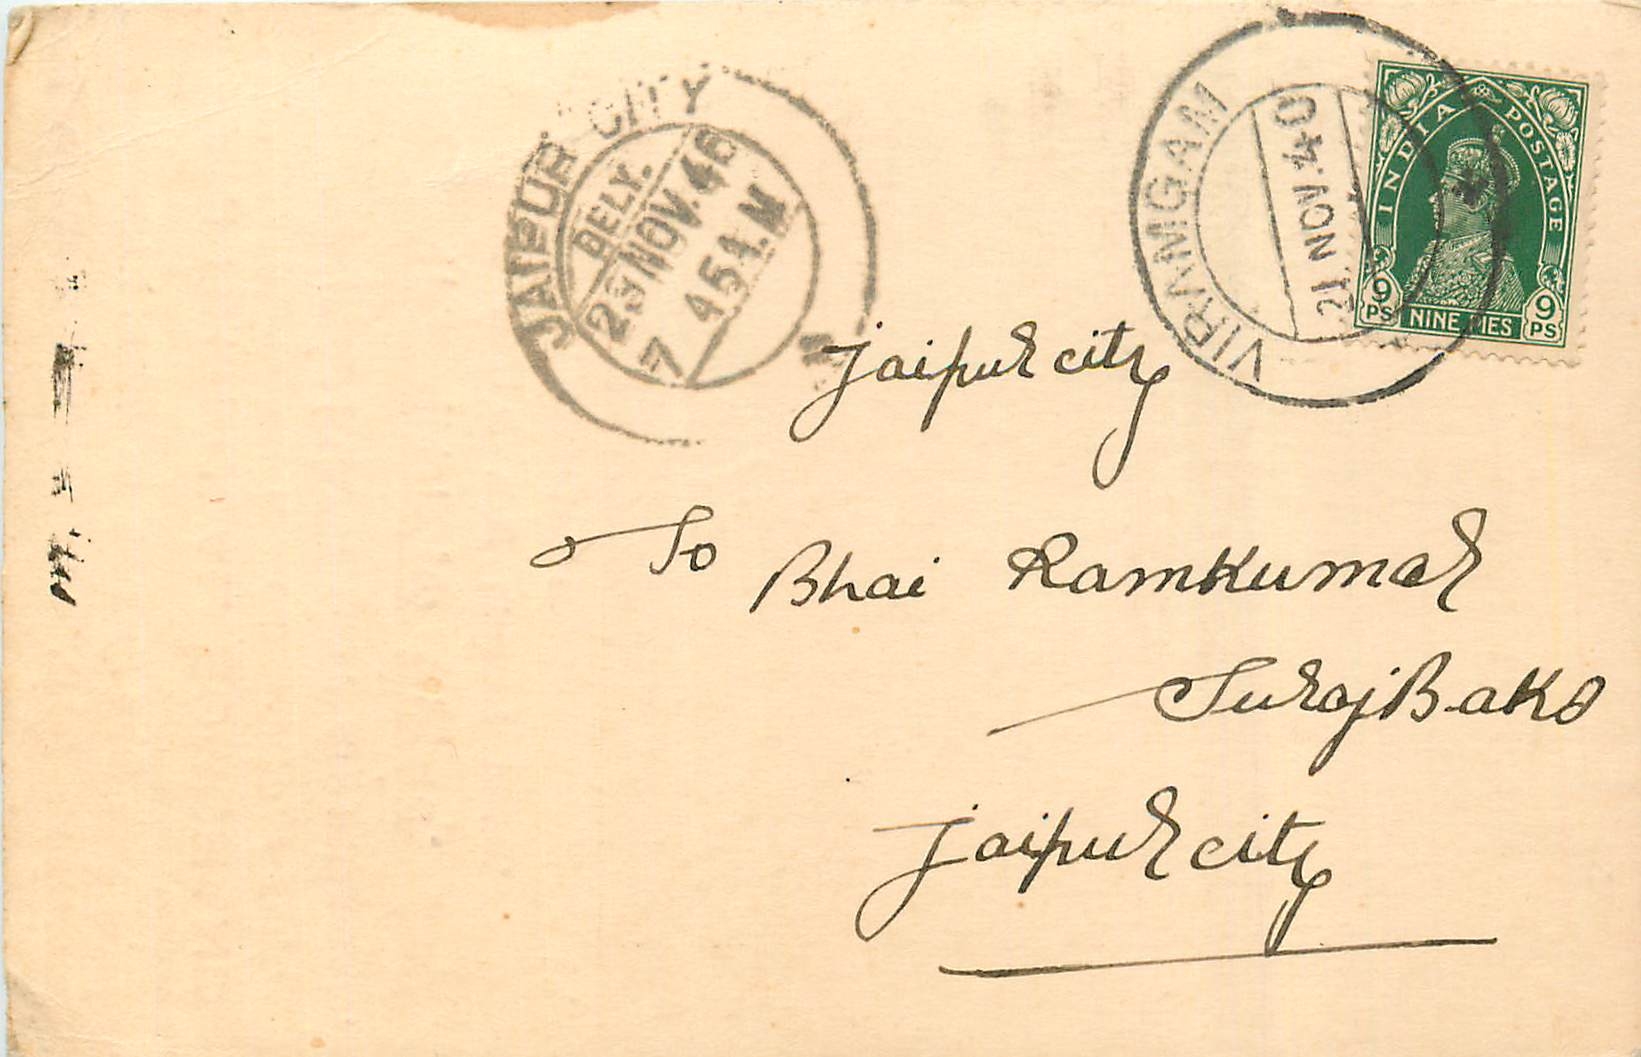 JAIPUR CITY
DELY.
23 NOV. 46
7 45 A.M
VIRAMGAM
21 NOV 40
INDIA POSTAGE
9 PS
NINE PIES
9 PS
Jaipur city
To Bhai Ramkumar
SurajBaks
Jaipur city